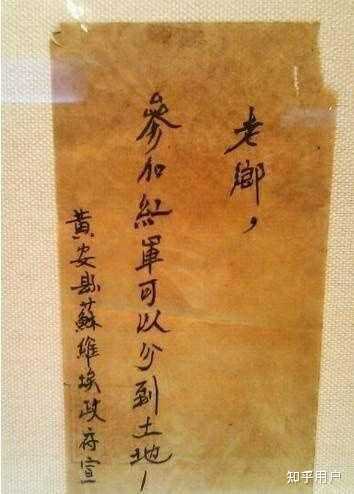 老鄉，
參加紅軍可以分到土地！
黃安縣蘇維埃政府宣
知乎用户